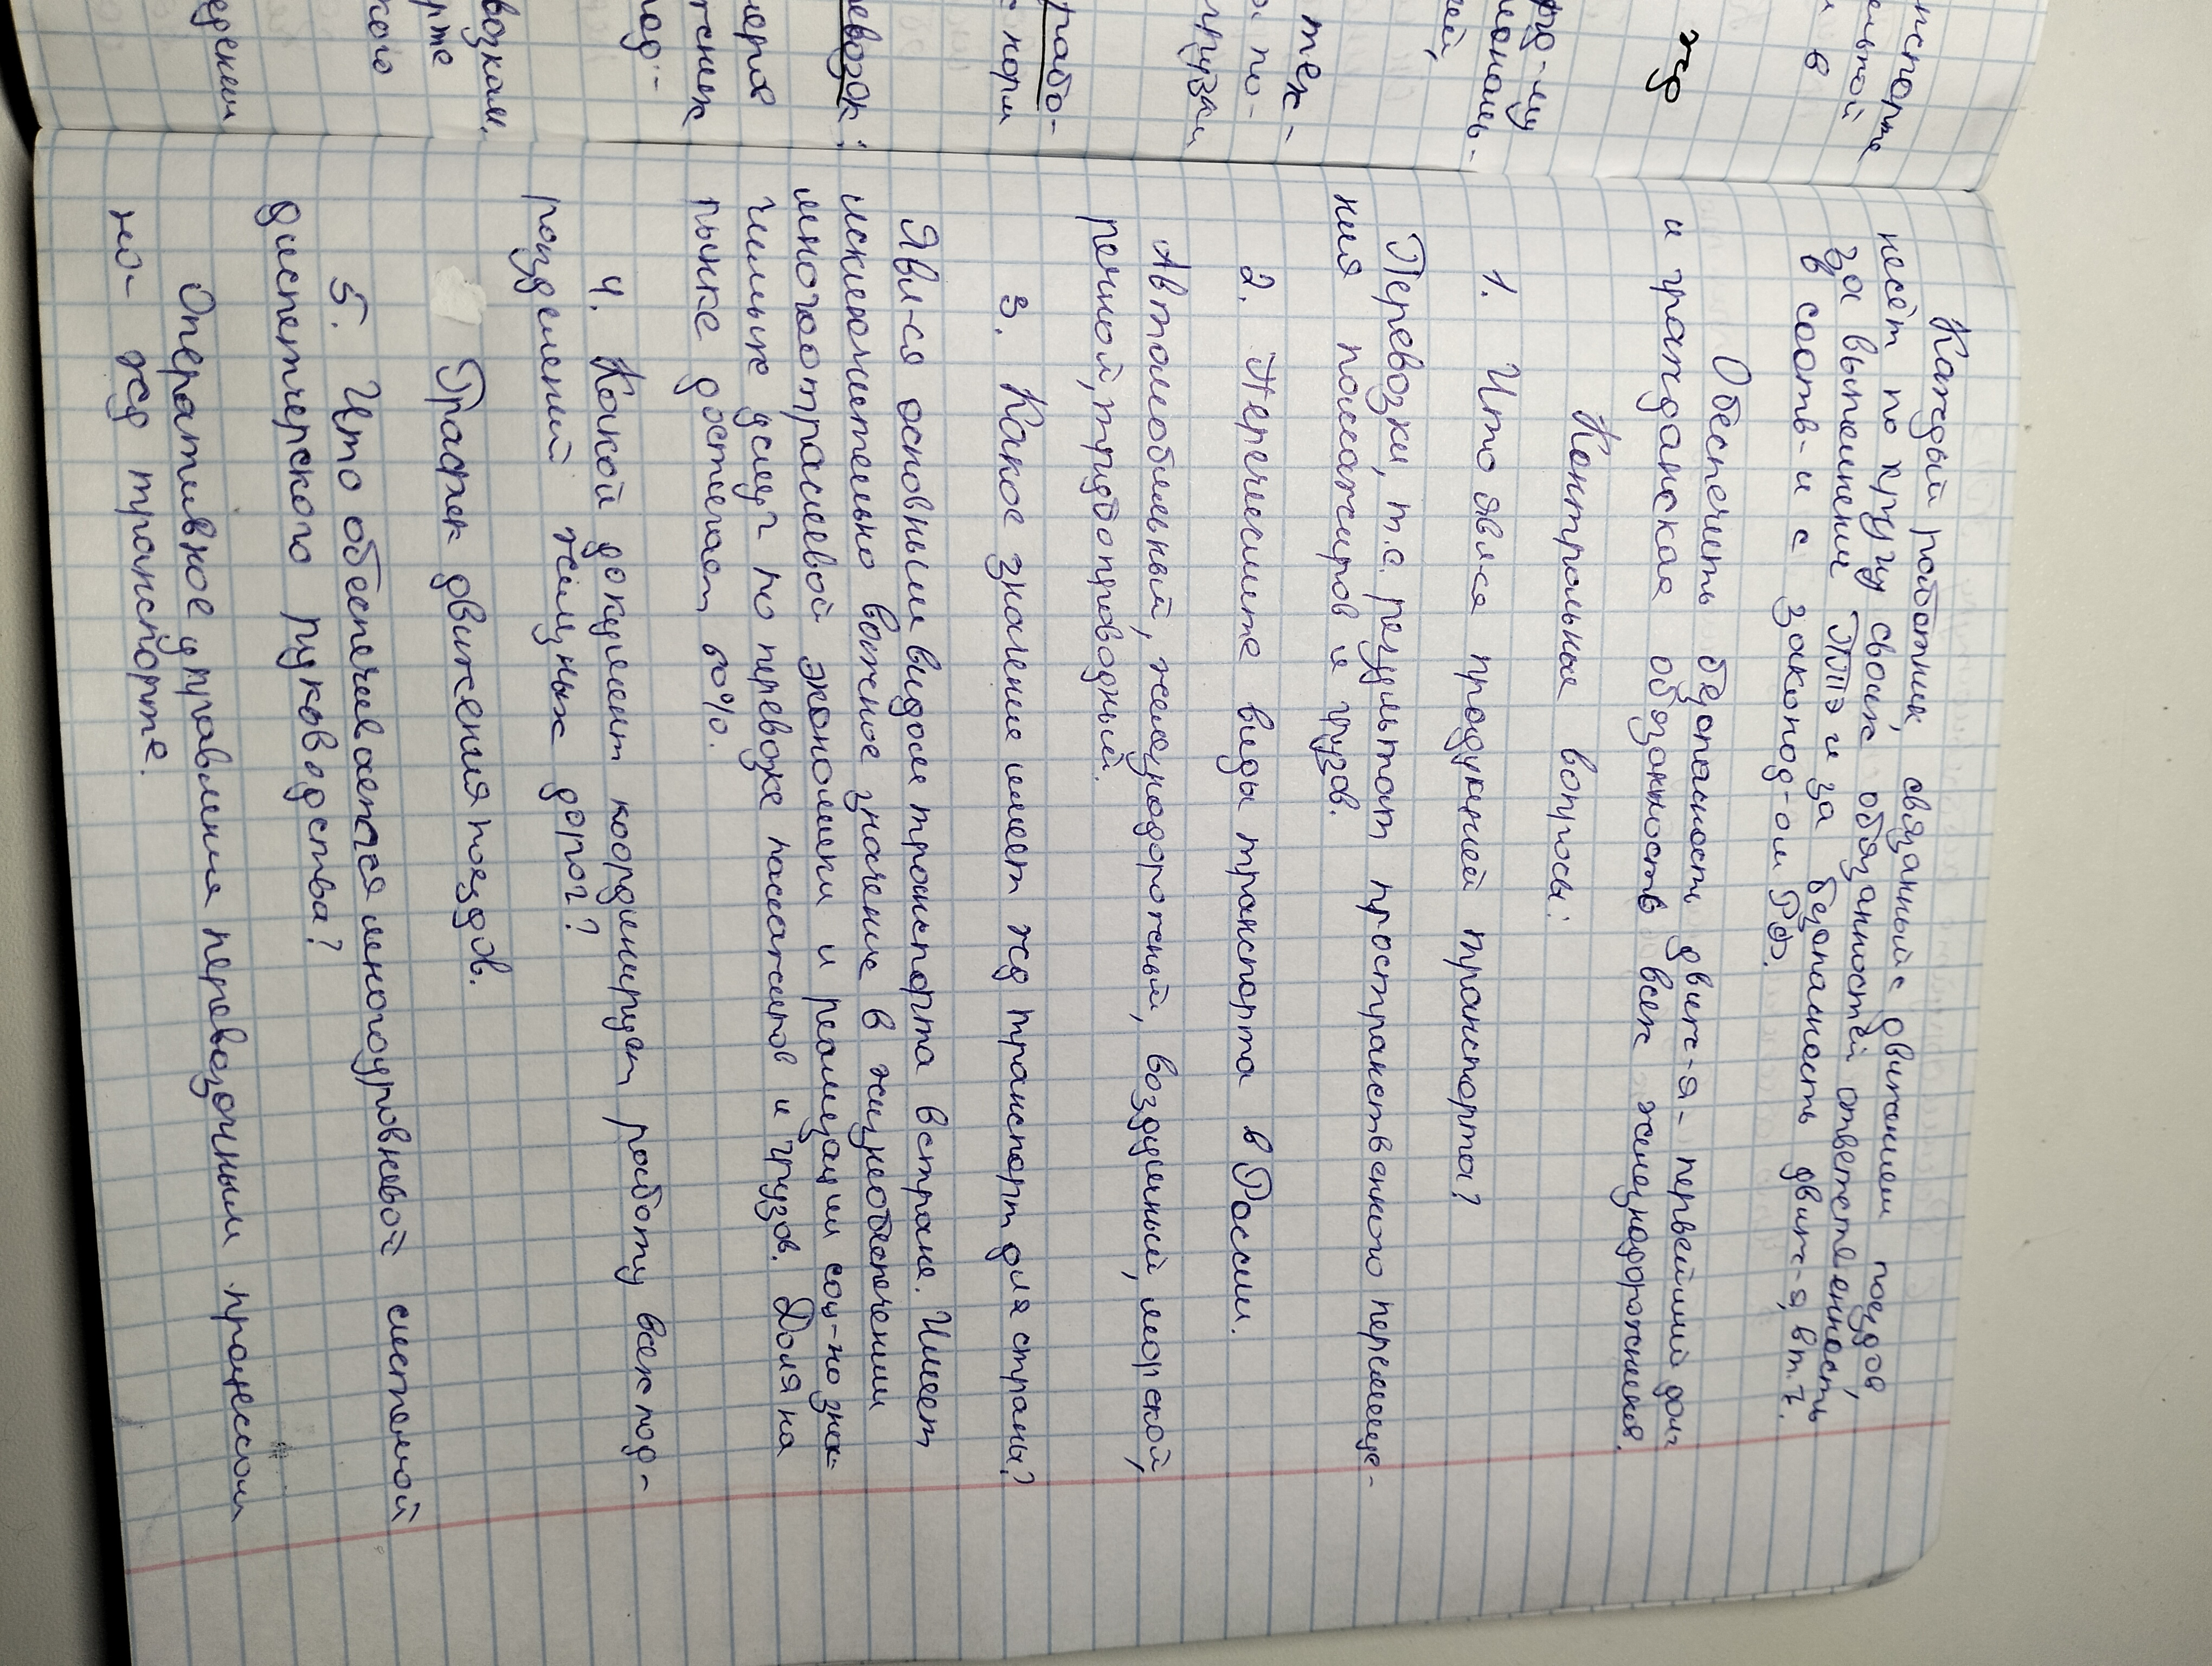 нспорте
ельной
и в
жд
рд-му
иональ-
ей,
тех-
а по-
грузки
рабо-
с норм
евозок:
неров
тских
под-
возкам.
рте
кого
едении
Каждый работник, связанный с движением поездов,
несёт по кругу своих обязанностей ответственность
за выполнения ПТЭ и за безопасность движ-я, в т.ч.
в соотв-и с законод-ом РФ.
Обеспечить безопасность движ-я - первейший долг
и гражданская обязанность всех железнодорожния.
Контрольные вопросы:
1. Что явл-ся продукцией транспорта?
Перевозки, т.е. результат пространственного перемеще-
ния пассажиров и грузов.
2. Перечислите виды транспорта в России.
Автомобильный, железнодорожный, воздушный, морской,
речной, трубопроводный.
3. Какое значение имеет жд транспорт для страны?
Явл-ся основным видом транспорта в стране. Имеет
исключительно важное значение в жизнеобеспечении
многоотраслевой экономики и реализации соц-но знач-
чимых услуг по перевозке пассажиров и грузов. Доля на
рынке достегает 60%.
4. Какой документ координирует работу всех под-
разделений желзных дорог?
График движения поездов.
5. Что обеспечивается многоуровневой системой
диспетчерского руководства?
Оперативное управления перевозочным процессом
на жд транспорте.